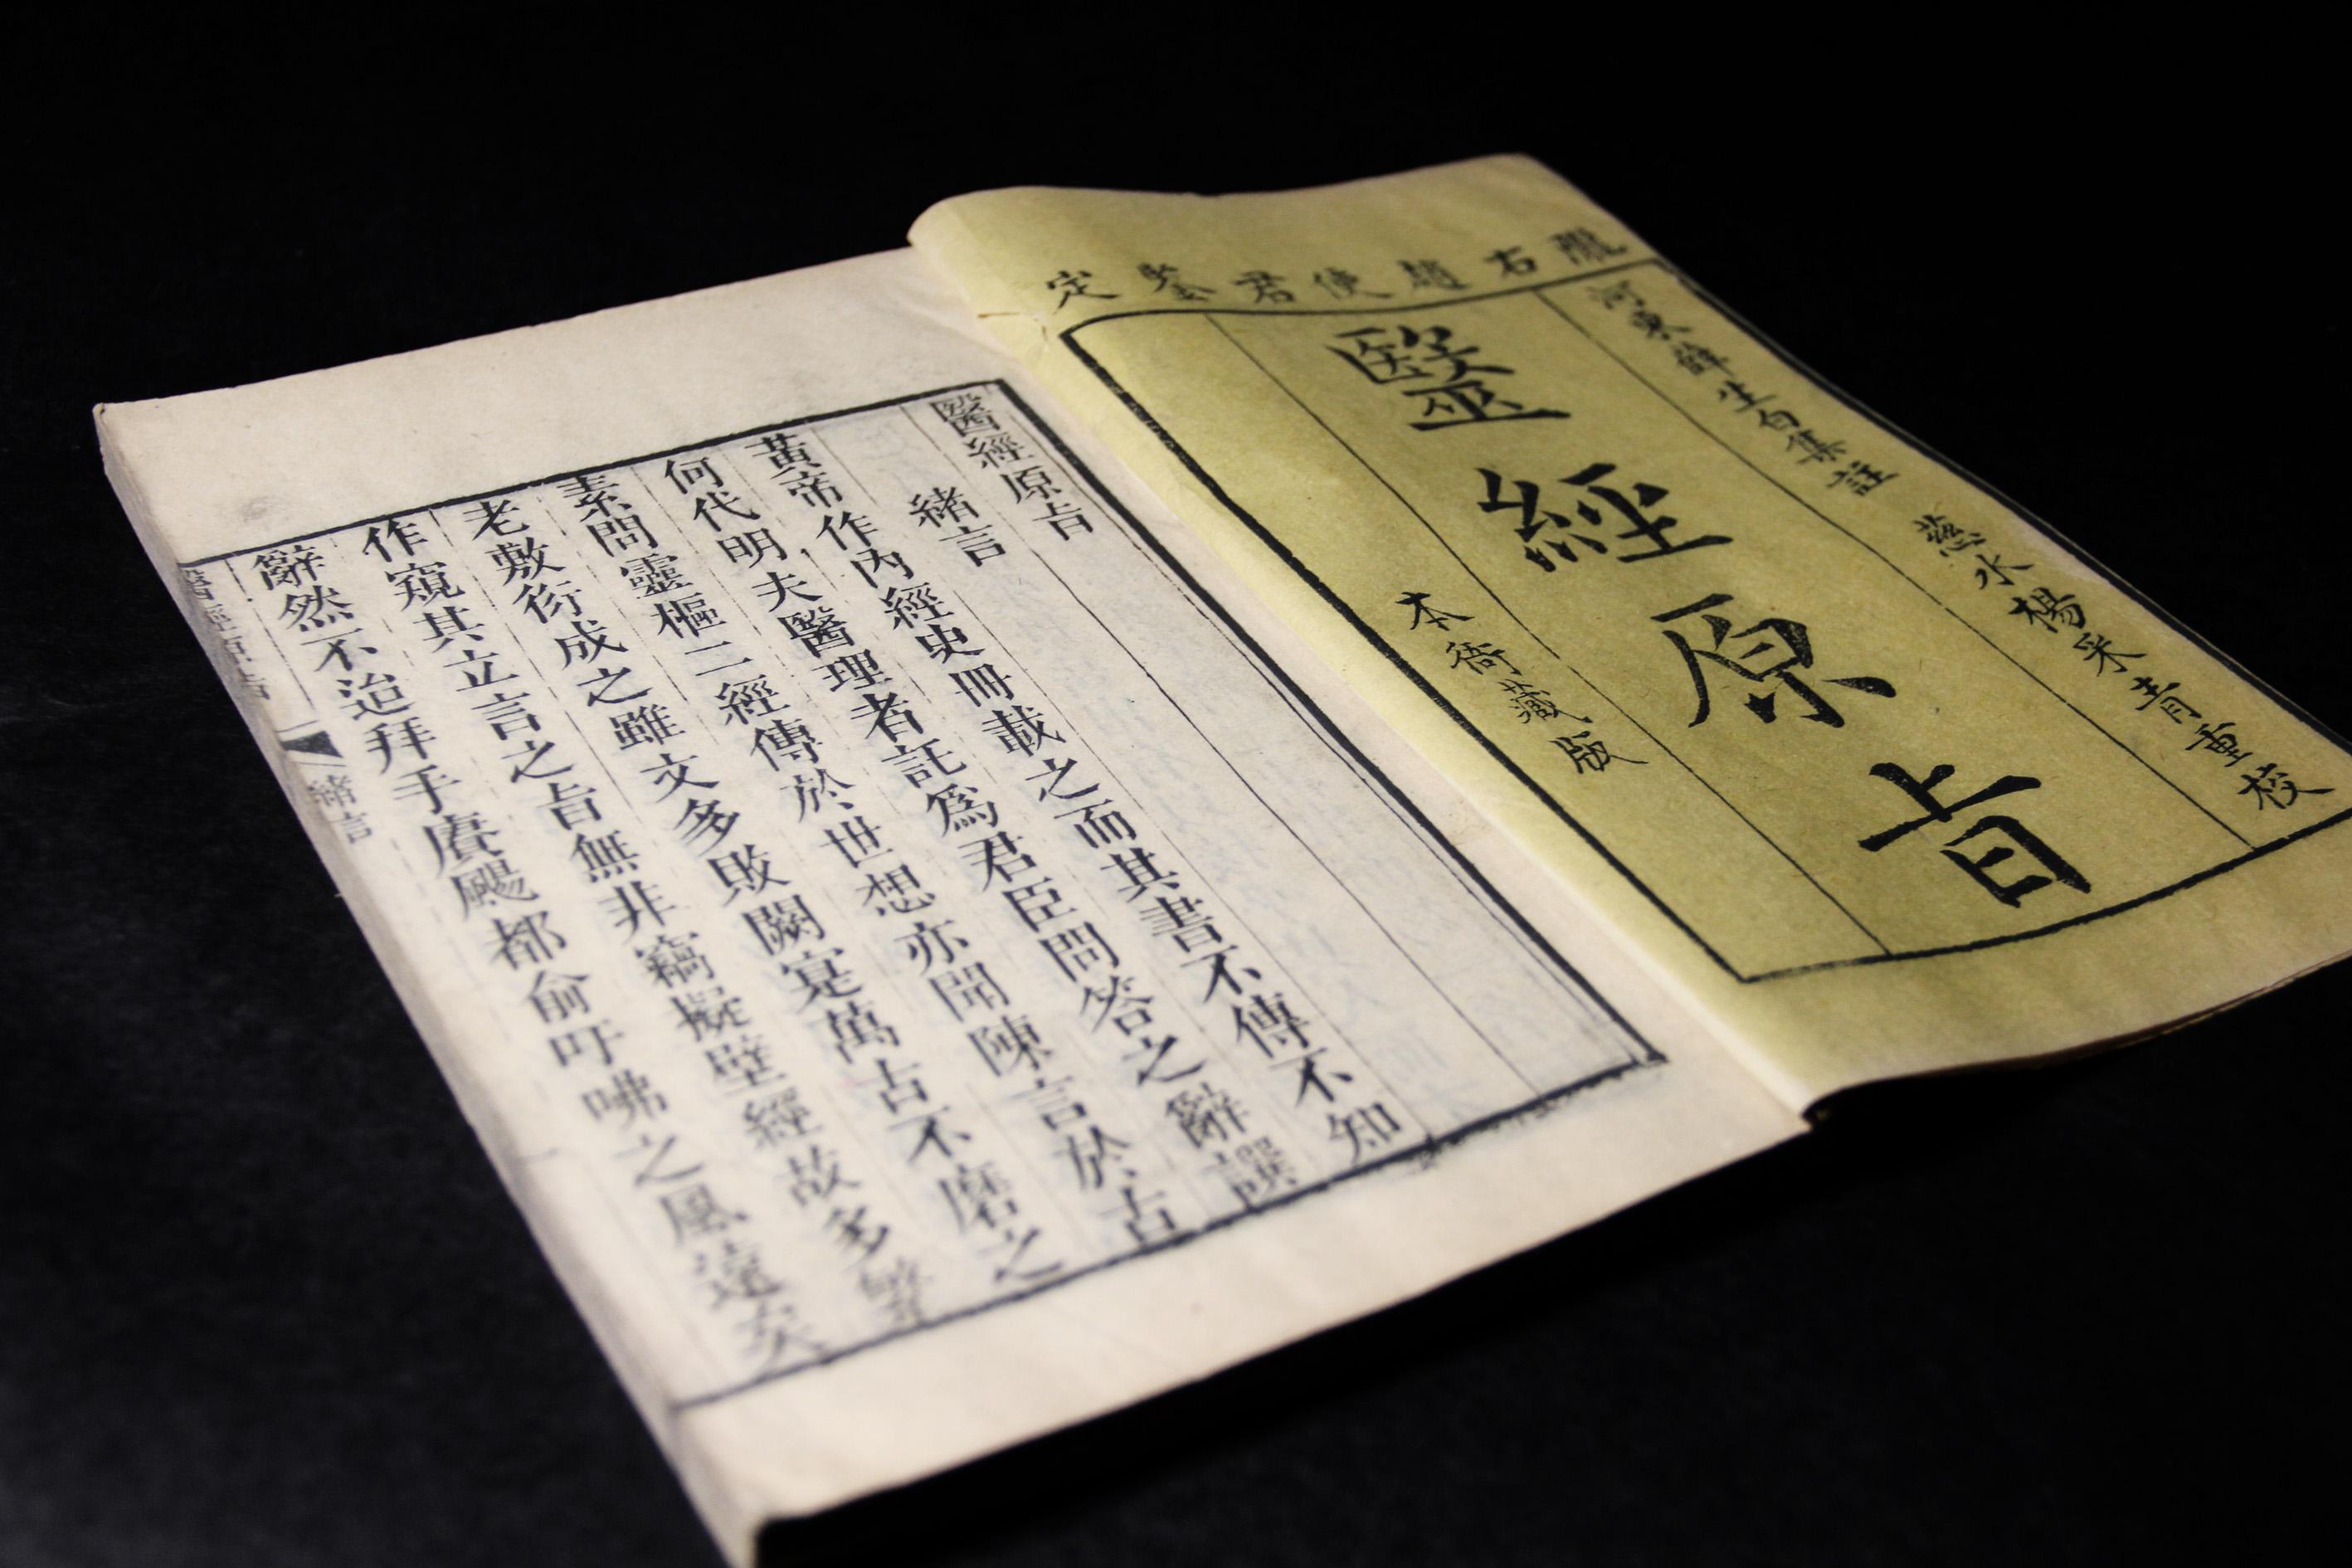 隴右趙使君鍳定
河東薛生白集註　慈水楊采青重校
毉經原㫖
本衙藏版
醫經原㫖
緒言
黃帝作內經史冊載之而其書不傳不知
何代明夫醫理者託爲君臣問答之辭譔
素問靈樞二經傳於世想亦聞陳言於古
老敷衍成之雖文多敗闕寔萬古不磨之
作窺其立言之㫖無非竊擬壁經故多繁
辭然不迨拜手賡颺都俞吁咈之風遠矣
醫經原㫖
緒言